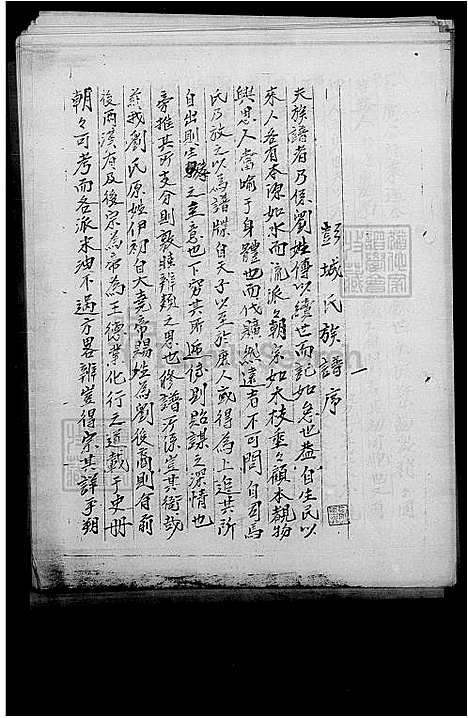 彭城氏族譜序
夫族譜者乃係劉姓傳以續世而記如急世益自生民以
來人各有本源如水而流派々朝宗如木枝垂々顧本親物
與思人當喻于身體也而代曠然遠者不可問自司馬
氏乃放之以為譜牒自天子以至於庶人或得為上追其所
自出則生孝之主意也下窮其所遞傳則貽謀之深情也
旁推其所支分則敦睦辨類之恩也修譜所係豈其銜哉
茲我劉氏原姓伊祁自大堯帝賜姓為劉後裔則有前
後西漢有及後宗為帝為王德業化行之道載于史冊
朝々可考而各派本油不過方畧辨豈得宗其詳乎朔